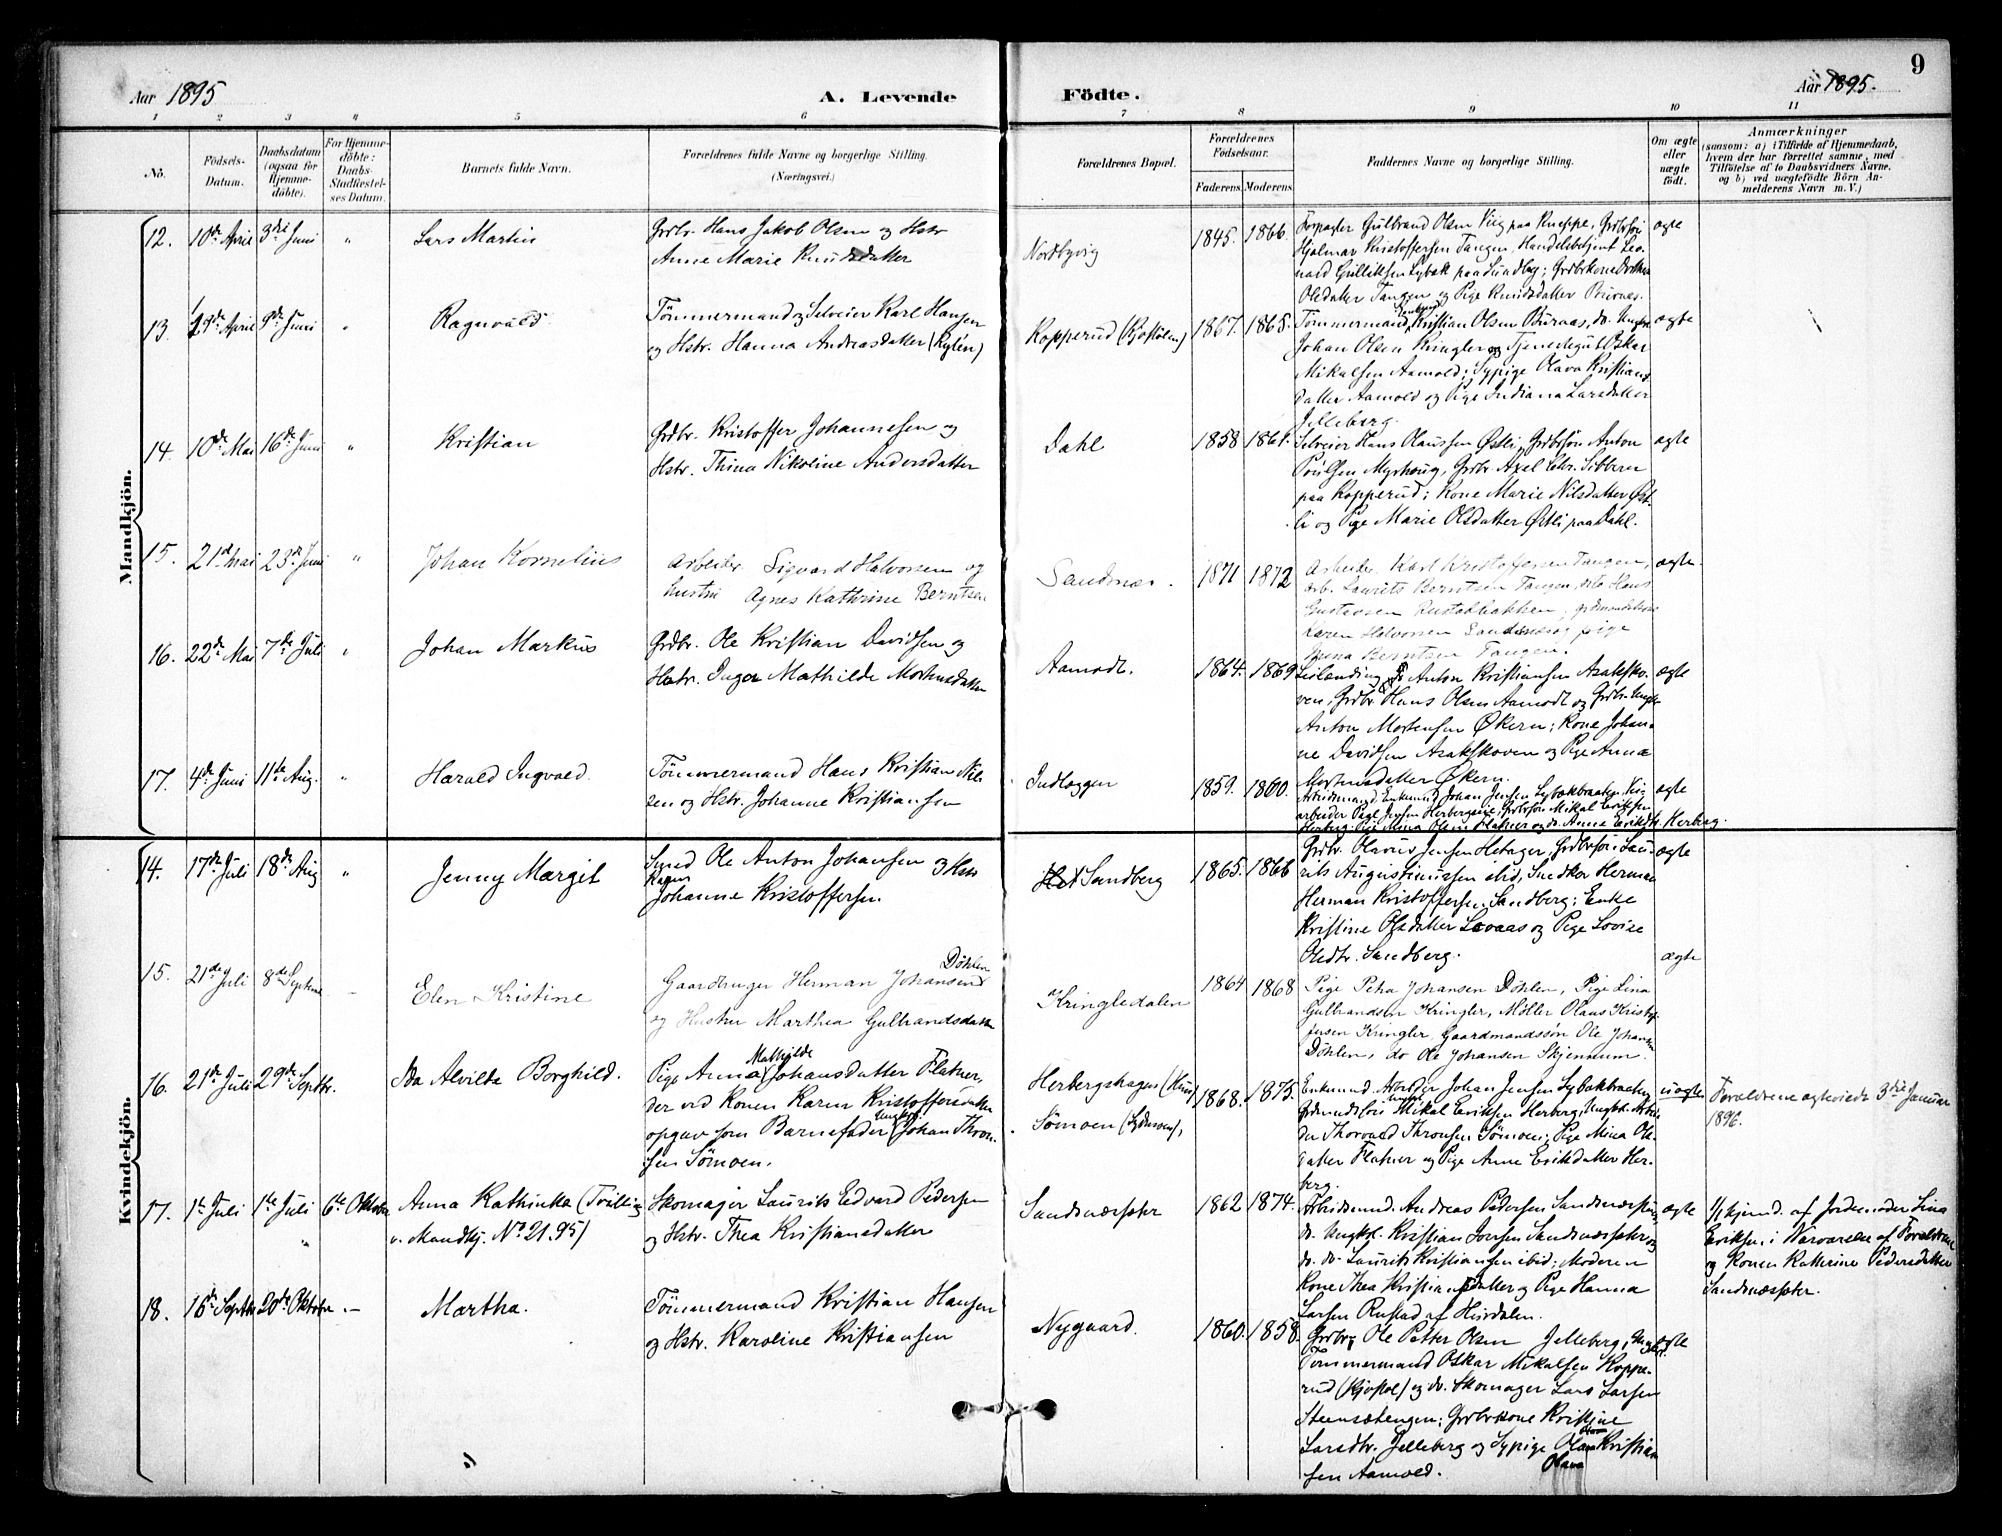 9
Aar 1895
A. Levende
Födte.
Aar 1895.
1 2 3 4 5 6 7 8 9 10 11
No.
Födsels-
Datum.
Daabsdatum
(ogsaa for
Hjemme-
döbte).
For Hjemme-
döbte:
Daabs-
Stadfæstel-
ses Datum.
Barnets fulde Navn.
Forældrenes fulde Navne og borgerlige Stilling.
(Næringsvei.)
Forældrenes Bopæl.
Forældrenes
Födselsaar.
Faderens.
Moderens.
Faddernes Navne og borgerlige Stilling.
Om ægte
eller
uægte
födt.
Anmærkninger
(saasom: a) i Tilfælde af Hjemmedaab,
hvem der har forrettet samme, med
Tilföielse af to Daabsvidners Navne.
og b) ved uægtefödte Börn An-
melderens Navn m. V.)
Mandkjön.
12. 10de April 3die Juni " Lars Martin
Grdbr. Hans Jakob Olsen og Hstr
Anne Marie Knudsdatter
Nordbyvig
1845. 1866.
Forpagter Gulbrand Olsen Viig paa Kneppe, Grdbrsön
Hjalmar Kristoffersen Tangen, Handelsbetjent Leo-
nard Gulliksen Lybæk paa Sundby; Grdbrkone Dorthea
Olsdatter Tangen og Pige Knudsdatter Buraas.
ægte
13. 29de April 9de Juni " Ragnvald
Tömmermand og Selveier Karl Hansen
og Hstr. Hanna Andreasdatter (Rylén)
Kopperud (Kjostölen)
1867. 1868.
Tømmermand Kristian Olsen Buraas, do. Ungkr.
Johan Olsen Kringler og Tjenestegut Oskar
Mikalsen Aamold; Sypige Olava Kristians-
datter Aamold og Pige Indiana Larsdatter
Jelleberg.
ægte
14. 10de Mai 16de Juni " Kristian
Grdbr. Kristoffer Johannesen og
Hstr. Thina Nikoline Andersdatter
Dahl
1858 1861.
Selveier Hans Olaussen Østli, Grdbrsön Anton
Poulsen Myrhaug, Grdbr. Axel Sibbern
paa Kopperud; Kone Marie Nilsdatter Øst-
li og Pige Marie Olsdatter Østli paa Dahl.
ægte
15. 21de Mai 23de Juni " Johan Kornelius
Arbeider Sigvard Halvorsen og
hustru Agnes Kathrine Berntsen
Sandsnæs.
1871 1872
Arbeider Karl Kristoffersen Tangen,
arb. Laurits Berntsen Tangen, do Hans
Gustavsen Rustadbakken, grdmandskone
Karen Halvorsen Sandsnæs og pige
Berntsen Tangen.
ægte
16. 22de Mai 7de Juli " Johan Markus
Grdbr. Ole Kristian Davidsen og
Hstr. Inger Mathilde Mortensdatter
Aamodt.
1864. 1869
Anton Kristiansen Asaksko-
ven, Grdbr. Hans Olsen Aamodt og Grdbr. Ungkr
Anton Mortensen Økern; Kone Johan-
ne Davidsen Asakskoven og Pige Anna
Mortensdatter Økern.
ægte
17. 4de Juni 11te Aug. " Harald Ingvald.
Tømmermand Hans Kristian Nil-
sen og Hstr. Johanne Kristiansen
Indlæggen
1859. 1860.
Arbeidsmand, Enkemand Johan Jensen Lybækbraaten,
arbeider Hersbergseie, Grdbrsön Mikal Eriksen
Herberg. Pige Mina Olsen Flatner og do. Anne Eriksdtr. Herberg.
ægte
Kvindekjön.
14. 17de Juli 18de Aug " Jenny Margit
Smed Ole Anton Johansen og Hstr
Johanne Kristoffersen.
Sandberg
1865. 1866
Grdbr. Olavus Jensen Hebager, Grdbrsön Lau-
rits Augustinussen ibid, Snedker Herman
Herman Kristoffersen Sandberg; Enke
Kristine Olsdatter Lovaas og Pige Lovise
Olsdtr. Sandberg.
ægte
15. 21de Juli 8de Septbr. – Elen Kristine
Gaardbruger Herman Johansen Döhlen
og Hustru Marthea Gulbrandsdatter
Kringledalen
1864 1868
Pige Petra Johansen Döhlen, Pige Lina
Gulbrandsen Kringler, Möller Olaus Kristof-
fersen Kringler Gaardmandssön Ole Johansen
Döhlen, do Ole Johansen Skjennum.
ægte
16. 21de Juli 29de Septbr. Ida Alvilde Borghild.
Pige Anna Mathilde Johansdatter Flatner,
der ved Konen Karen Kristoffersdatter
opgav som Barnefader Ungkr. Johan Thron-
sen Sömoen.
Herbergshagen (Hun)
Sömoen (Lysern),
1868. 1875.
Enkemand Arbeider Johan Jensen Lybækbraaten,
Grdmandssön Mikal Eriksen Herberg, Ungkr. Arbei-
der Thorvald Thronsen Sömoen; Pige Mina Ols-
datter Flatner og Pige Anne Eriksdatter Her-
berg.
uægte
Forældrene ægteviede 3die Januar
1896.
17. 1ste Juli 1ste Juli 6te Oktober Anna Kathinka (Tvilling
v. Mandkj. No 21. 95)
Skomager Laurits Edvard Pedersen
og Hstr. Thea Kristiansdatter
Sandsnæsseter
1862 1874.
Arbeidsmd. Andreas Pedersen Sandsnæsseter,
do. Ungkr. Kristian Jonsen Sandsnæsseter og
do. do. Laurits Kristiansen ibid; Moderen
Kone Thea Kristiansdatter og Pige Hanna
Larsen Rustad af Hurdalen.
ægte
Hjemd. af Jordemoder Lina
Eriksen i Nærværelse af Forældrene
og Konen Kathrine Pedersdatter
Sandsnæsseter.
18. 16de Septbr 20de Oktober – Martha.
Tömmermand Kristian Hansen
og Hstr. Karoline Kristiansen
Nygaard.
1860. 1858.
Grdbr. Ole Petter Olsen Jelleberg, Ungkr.
Tömmermand Oskar Mikalsen Koppe-
rud (Kjostöl) og do. Skomager Lars Larsen
Steensætengen; Grdbrkone Kristine
Larsdtr. Jelleberg og Sypige Olava Kristian-
sen Aamold.
Olava
ægte